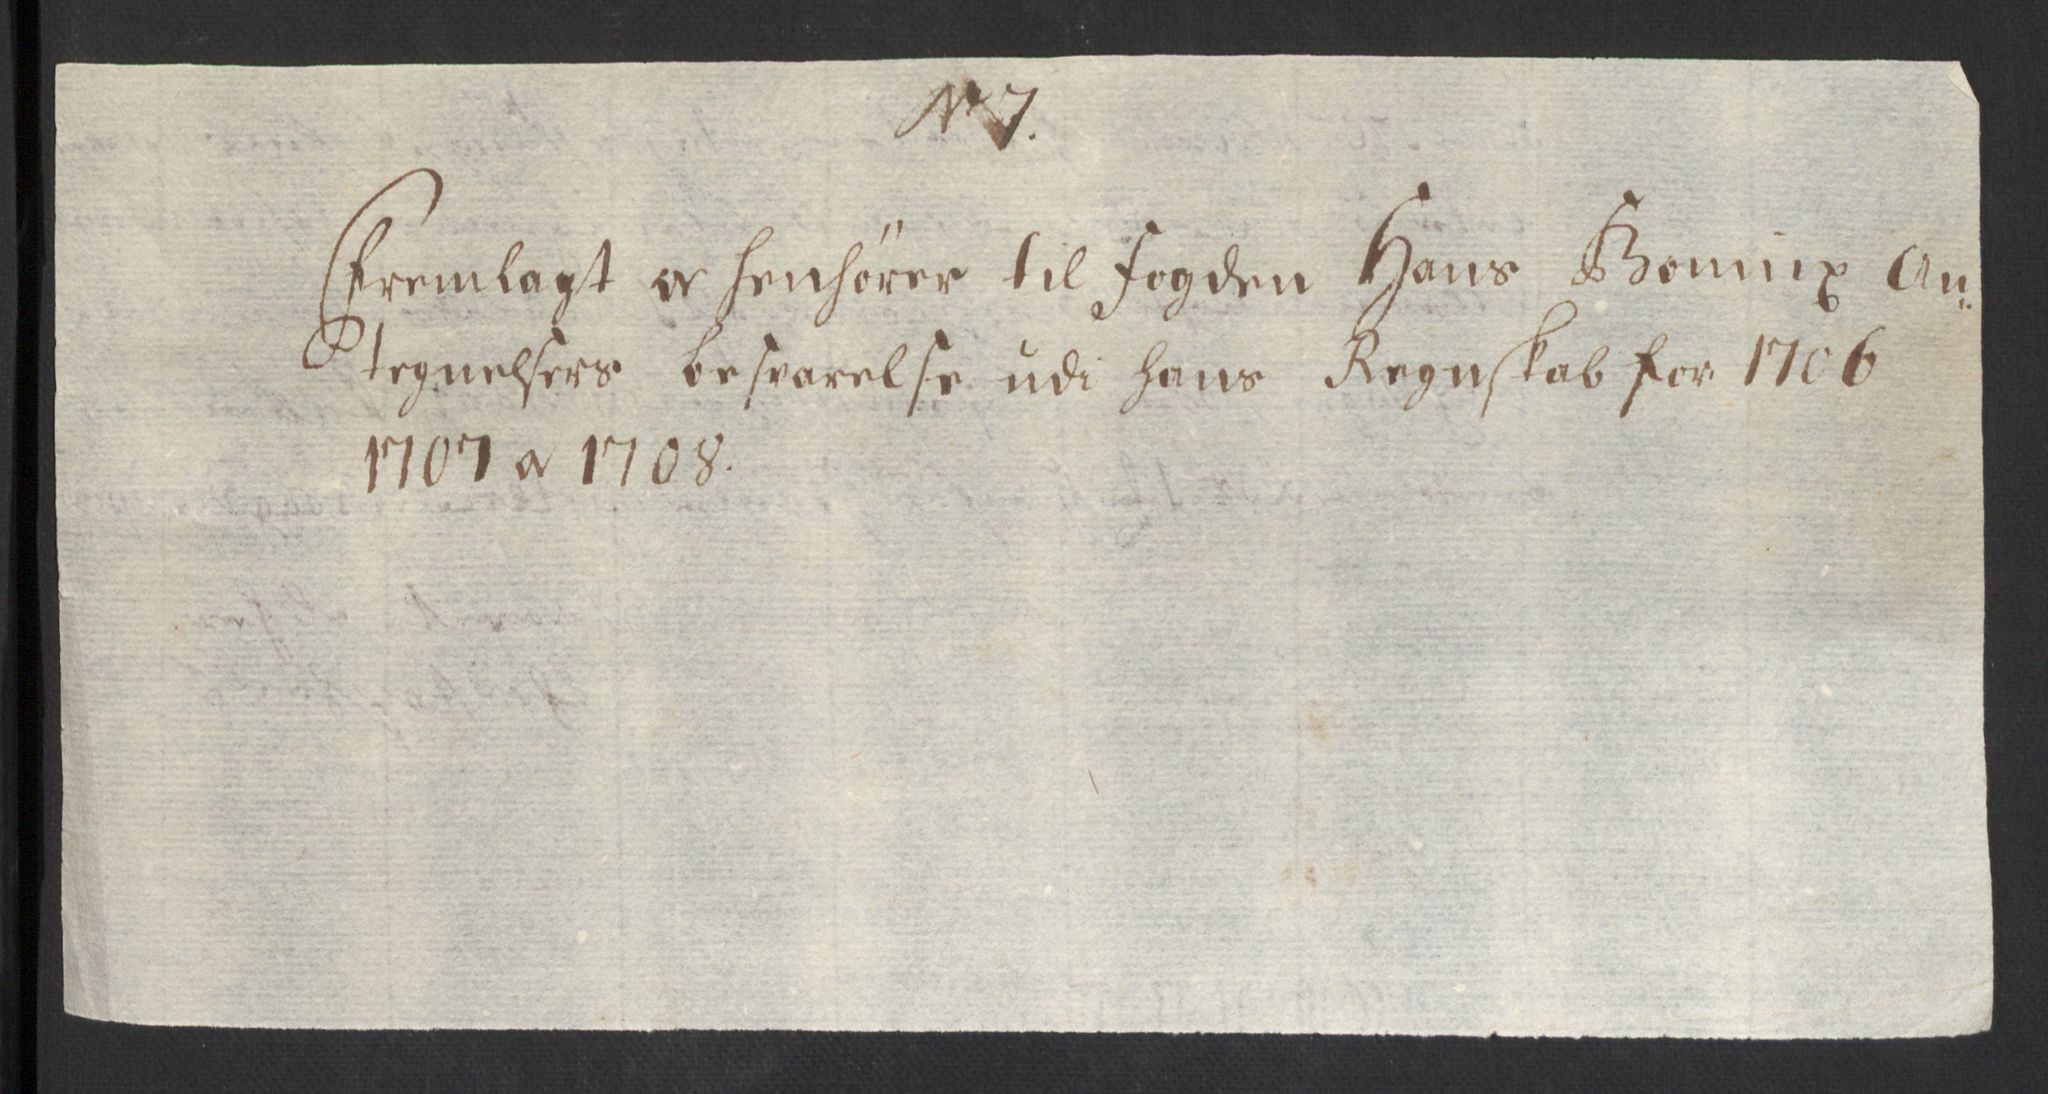 No 7.
Fremlagt og henhörer til fogden Hans Bernix An-
tegnelsers besvarelse udi hans Regnskab for 1706
1707 og 1708.